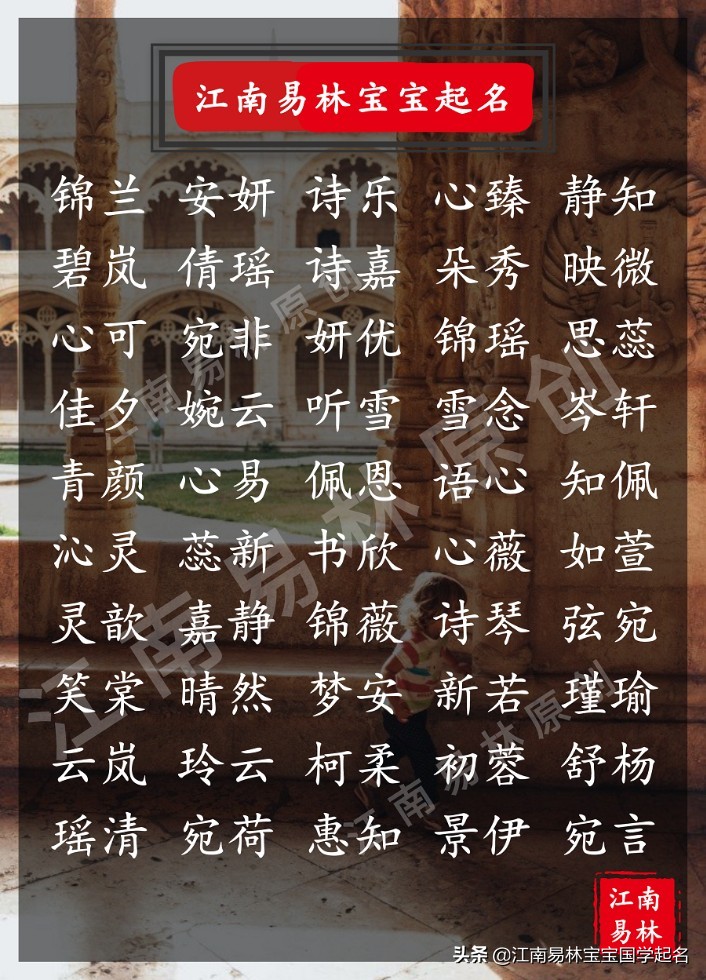 江南易林宝宝起名
锦兰 安妍 诗乐 心臻 静知
碧岚 倩瑶 诗嘉 朵秀 映微
心可 宛非 妍优 锦瑶 思蕊
佳夕 婉云 听雪 雪念 岑轩
青颜 心易 佩恩 语心 知佩
沁灵 蕊新 书欣 心薇 如萱
灵歆 嘉静 锦薇 诗琴 弦宛
笑棠 晴然 梦安 新若 瑾瑜
云岚 玲云 柯柔 初蓉 舒杨
瑶清 宛荷 惠知 景伊 宛言
江南易林原创
江南易林原创
江南易林原创
江南
易林
头条 @江南易林宝宝国学起名